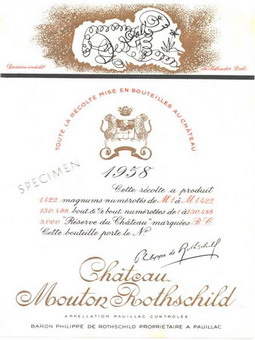 Dessin inédit
Salvador Dali
TOUTE LA RÉCOLTE MISE EN BOUTEILLES AU CHÂTEAU
SPECIMEN
1958
Cette récolte a produit
1422 magnums numérotés de M1 à M1422
130.488 bout. & ½ bout. numérotées de 1 à 130.488
3.000 "Réserve du Château" marquées R.C.
Cette bouteille porte le No
Philippe de Rothschild
Château
Mouton Rothschild
APPELLATION PAUILLAC CONTROLÉE
BARON PHILIPPE DE ROTHSCHILD PROPRIÉTAIRE A PAUILLAC